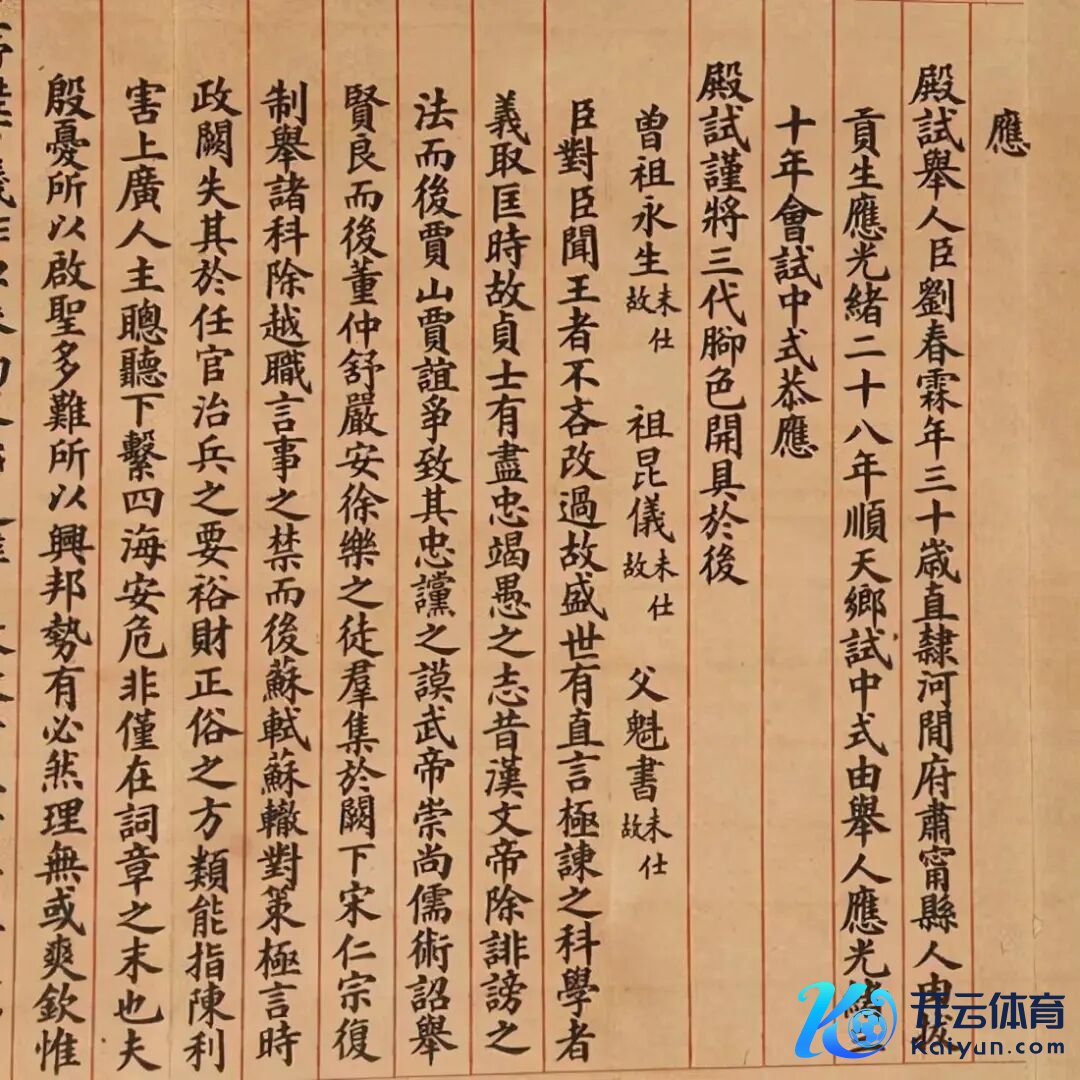 應
殿試舉人臣劉春霖年三十歲直隸河間府肅甯縣人由拔
貢生應光緒二十八年順天鄉試中式由舉人應光緒三
十年會試中式恭應
殿試謹將三代腳色開具於後
曾祖永生未仕故 祖昆儀未仕故 父魁書未仕故
臣對臣聞王者不吝改過故盛世有直言極諫之科學者
義取匡時故貞士有盡忠竭愚之志昔漢文帝除誹謗之
法而後賈山賈誼爭致其忠讜之謨武帝崇尚儒術詔舉
賢良而後董仲舒嚴安徐樂之徒羣集於闕下宋仁宗復
制舉諸科除越職言事之禁而後蘇軾蘇轍對策極言時
政闕失其於任官治兵之要裕財正俗之方類能指陳利
害上廣人主聰聽下繫四海安危非僅在詞章之末也夫
殷憂所以啟聖多難所以興邦勢有必然理無或爽欽惟
开云体育
Kaiyun.com